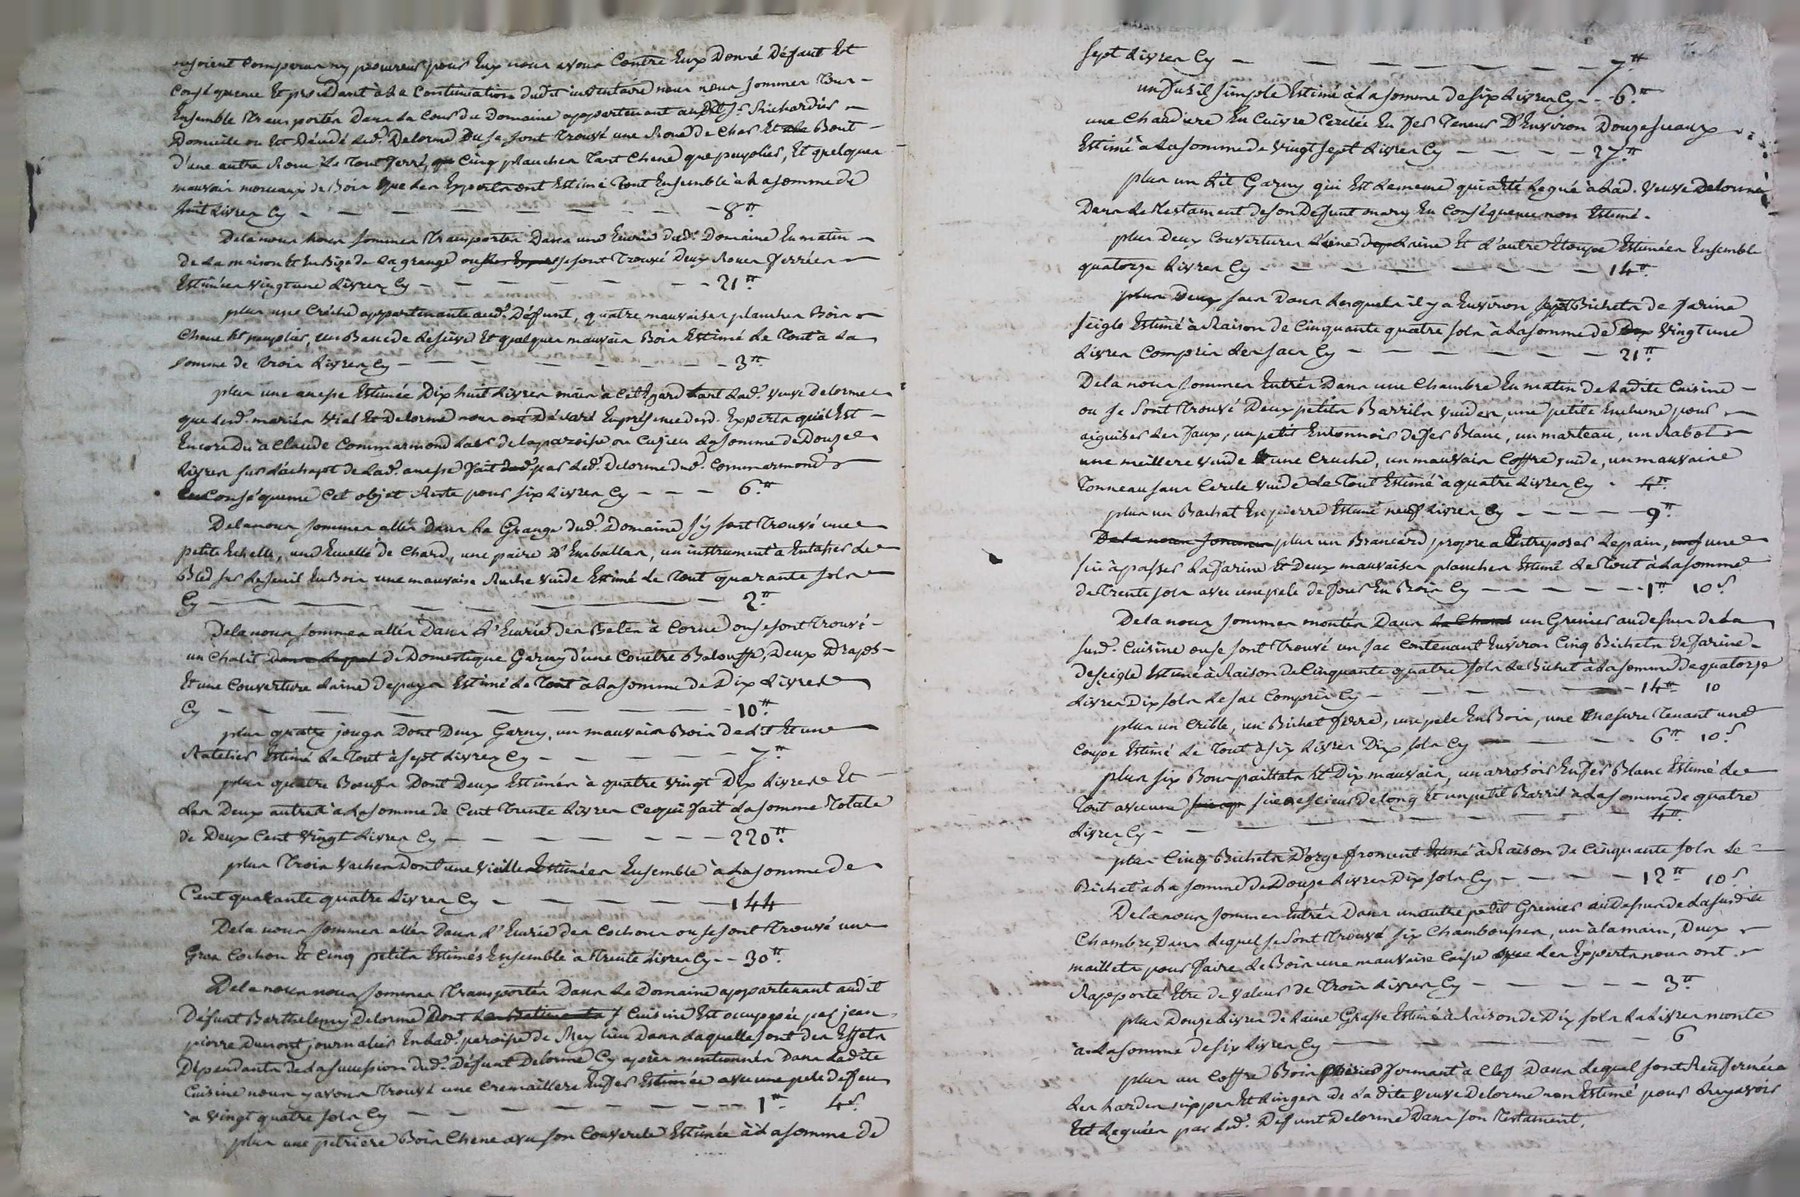 n'oient comparu ny procureur pour Eux nous avons Contre Eux Donné Défaut Et
Conséquence Et procédant à La Continuation dudit inventaire nous nous sommes
Ensemble Transportés Dans La Cour du Domaine appartenant audit Sr. Richardier
Domicile ou Est Décédé led. Delorme ou se sont Trouvé une Roue de Char Et Bout
d'une autre Roue Le Tout ferré, Cinq planches Tant Chene que puplier, Et quelques
mauvais morceaux de Bois que Les Experts ont Estimé Tout Ensemble à La somme de
huit Livres Cy - 8tt
Dela nous nous sommes Transportés Dans une Ecurie dud. Domaine En matin
de La maison Et En Bize de La grange ou se sont Trouvé Deux Roues ferrées
Estimées vingt une Livres Cy - 21tt
plus une Crèche appartenante aud. Défunt, quatre mauvaises planches Bois
Chene Et peuplier, un Banc de Et quelques mauvais Bois Estimé Le Tout à La
somme de Trois Livres Cy - 3tt
plus une anesse Estimée Dix huit Livres mais à Cet Egard Lad. veuve Delorme
que Lesd. mariés Vial Et Delorme nous ont Déclaré En présence desd. Experts qu'il Est
Encore Dû à Claude Commarmond de la paroisse La somme de Douze
Livres sur L'achapt de Lad. anesse fait par Led. Delorme dud. Commarmond
En Conséquence Cet objet Reste pour six Livres Cy - 6tt
Dela nous sommes allés Dans La Grange dud. Domaine s'y sont Trouvé une
petite Echelle, une de Chard, une paire d'Emballas, un instrument à Entasser Le
Bled sur Le seuil En Bois une mauvaise Ruche vuide Estimé Le Tout quarante sols
Cy - 2tt
Dela nous sommes allés Dans L'Ecurie des Betes à Corne ou se sont Trouvé
un Chalit de Domestique Garny d'une Couetre Balouffe, Deux Draps
Et une Couverture Laine de pays Estimé Le Tout à La somme de Dix Livres
Cy - 10tt
plus quatre jougs Dont Deux Garny, un mauvais Bois de Lit Et un
Ratelier Estimé Le Tout à sept Livres Cy - 7tt
plus quatre Bœufs Dont Deux Estimés à quatre vingt Dix Livres Et
Les Deux autres à La somme de Cent Trente Livres Ce qui fait La somme Totale
de Deux Cent vingt Livres Cy - 220tt
plus Trois vaches Dont une vieille Estimées Ensemble à La somme de
Cent quarante quatre Livres Cy - 144
Dela nous sommes allés Dans L'Ecurie des Cochons ou se sont Trouvé un
Gros Cochon Et Cinq petits Estimés Ensemble à Trente Livres Cy - 30tt
Dela nous nous sommes Transportés Dans Le Domaine appartenant audit
Défunt Barthelemy Delorme Dont La Cuisine Est occupée par jean
pierre Dumont journalier En lad. paroisse de Meylieu Dans Laquelle sont Des Effets
Dépendants de La succession dud. Défunt Delorme Cy après mentionnés Dans Ladite
Cuisine nous y avons Trouvé une Cremaillere En fer Estimée avec une pele de feu
à vingt quatre sols Cy - 1tt 4s
plus une petriere Bois Chene avec son Couvercle Estimée à La somme de
sept Livres Cy - 7tt
un fusil simple Estimé à La somme de six Livres Cy - 6tt
une Chaudiere En Cuivre Cerclée En fer Teneur D'Environ Douze seaux
Estimé à La somme de vingt sept Livres Cy - 27tt
plus un Lit Garny qui Est Le meme qui a Eté Legué à Lad. veuve Delorme
Dans Le Testament de son Défunt mary En Conséquence non Estimé.
plus Deux Couvertures L'une de Laine Et L'autre Etoupe Estimées Ensemble
quatorze Livres Cy - 14tt
plus Deux sacs Dans Lesquels il y a Environ sept Bichets de farine
seigle Estimé à Raison de Cinquante quatre sols à La somme de vingt une
Livres Compris Les sacs Cy - 21tt
Dela nous sommes Entrés Dans une Chambre En matin de Ladite Cuisine
ou se sont Trouvé Deux petits Barrils vuides, une petite Enclume pour
aiguiser Les faux, un petit Entonnoir de fer Blanc, un marteau, un Rabot
une meillere vuide une Cruche, un mauvais Coffre vuide, un mauvais
Tonneau sans Cercle vuide Le Tout Estimé à quatre Livres Cy - 4tt
plus un Bachat En pierre Estimé neuf Livres Cy - 9tt
plus un Brancard propre a Entreposer Le pain, une
sie à passer La farine Et Deux mauvaises planches Estimé Le Tout à La somme
de Trente sols avec une pele de four En Bois Cy - 1tt 10s
Dela nous sommes montés Dans un Grenier au dessus de La
susd. Cuisine ou se sont Trouvé un sac Contenant Environ Cinq Bichets de farine
de seigle Estimé à Raison de Cinquante quatre sols Le Bichet à La somme de quatorze
Livres Dix sols Le sac Compris Cy - 14tt 10
plus un Crible, un Bichet ferré, une pele En Bois, une mesure Tenant une
Coupe Estimé Le Tout à six Livres Dix sols Cy - 6tt 10s
plus six Bons paillats Et Dix mauvais, un arrosoir En fer Blanc Estimé Le
Tout avec une sie a scieur de long Et un petit Barril à La somme de quatre
Livres Cy - 4tt
plus Cinq Bichets D'orge froment Estimé à Raison de Cinquante sols Le
Bichet à La somme de Douze Livres Dix sols Cy - 12tt 10s
Dela nous sommes Entrés Dans un autre petit Grenier au Dessus de La susdite
Chambre, Dans Lequel se sont Trouvé six, un à la main, Deux
maillets pour faire Le Bois une mauvaise que Les Experts nous ont
Rapporté Etre de valeur de Trois Livres Cy - 3tt
plus Douze Livres de Laine Grasse Estimé à Raison de Dix sols La Livre monte
à La somme de six Livres Cy - 6
plus un Coffre Bois fermant à Clef Dans Lequel sont Renfermées
Les hardes nippes Et Linges de La dite veuve Delorme non Estimé pour Les avoir
Eté Leguées par Led. Défunt Delorme Dans son Testament.